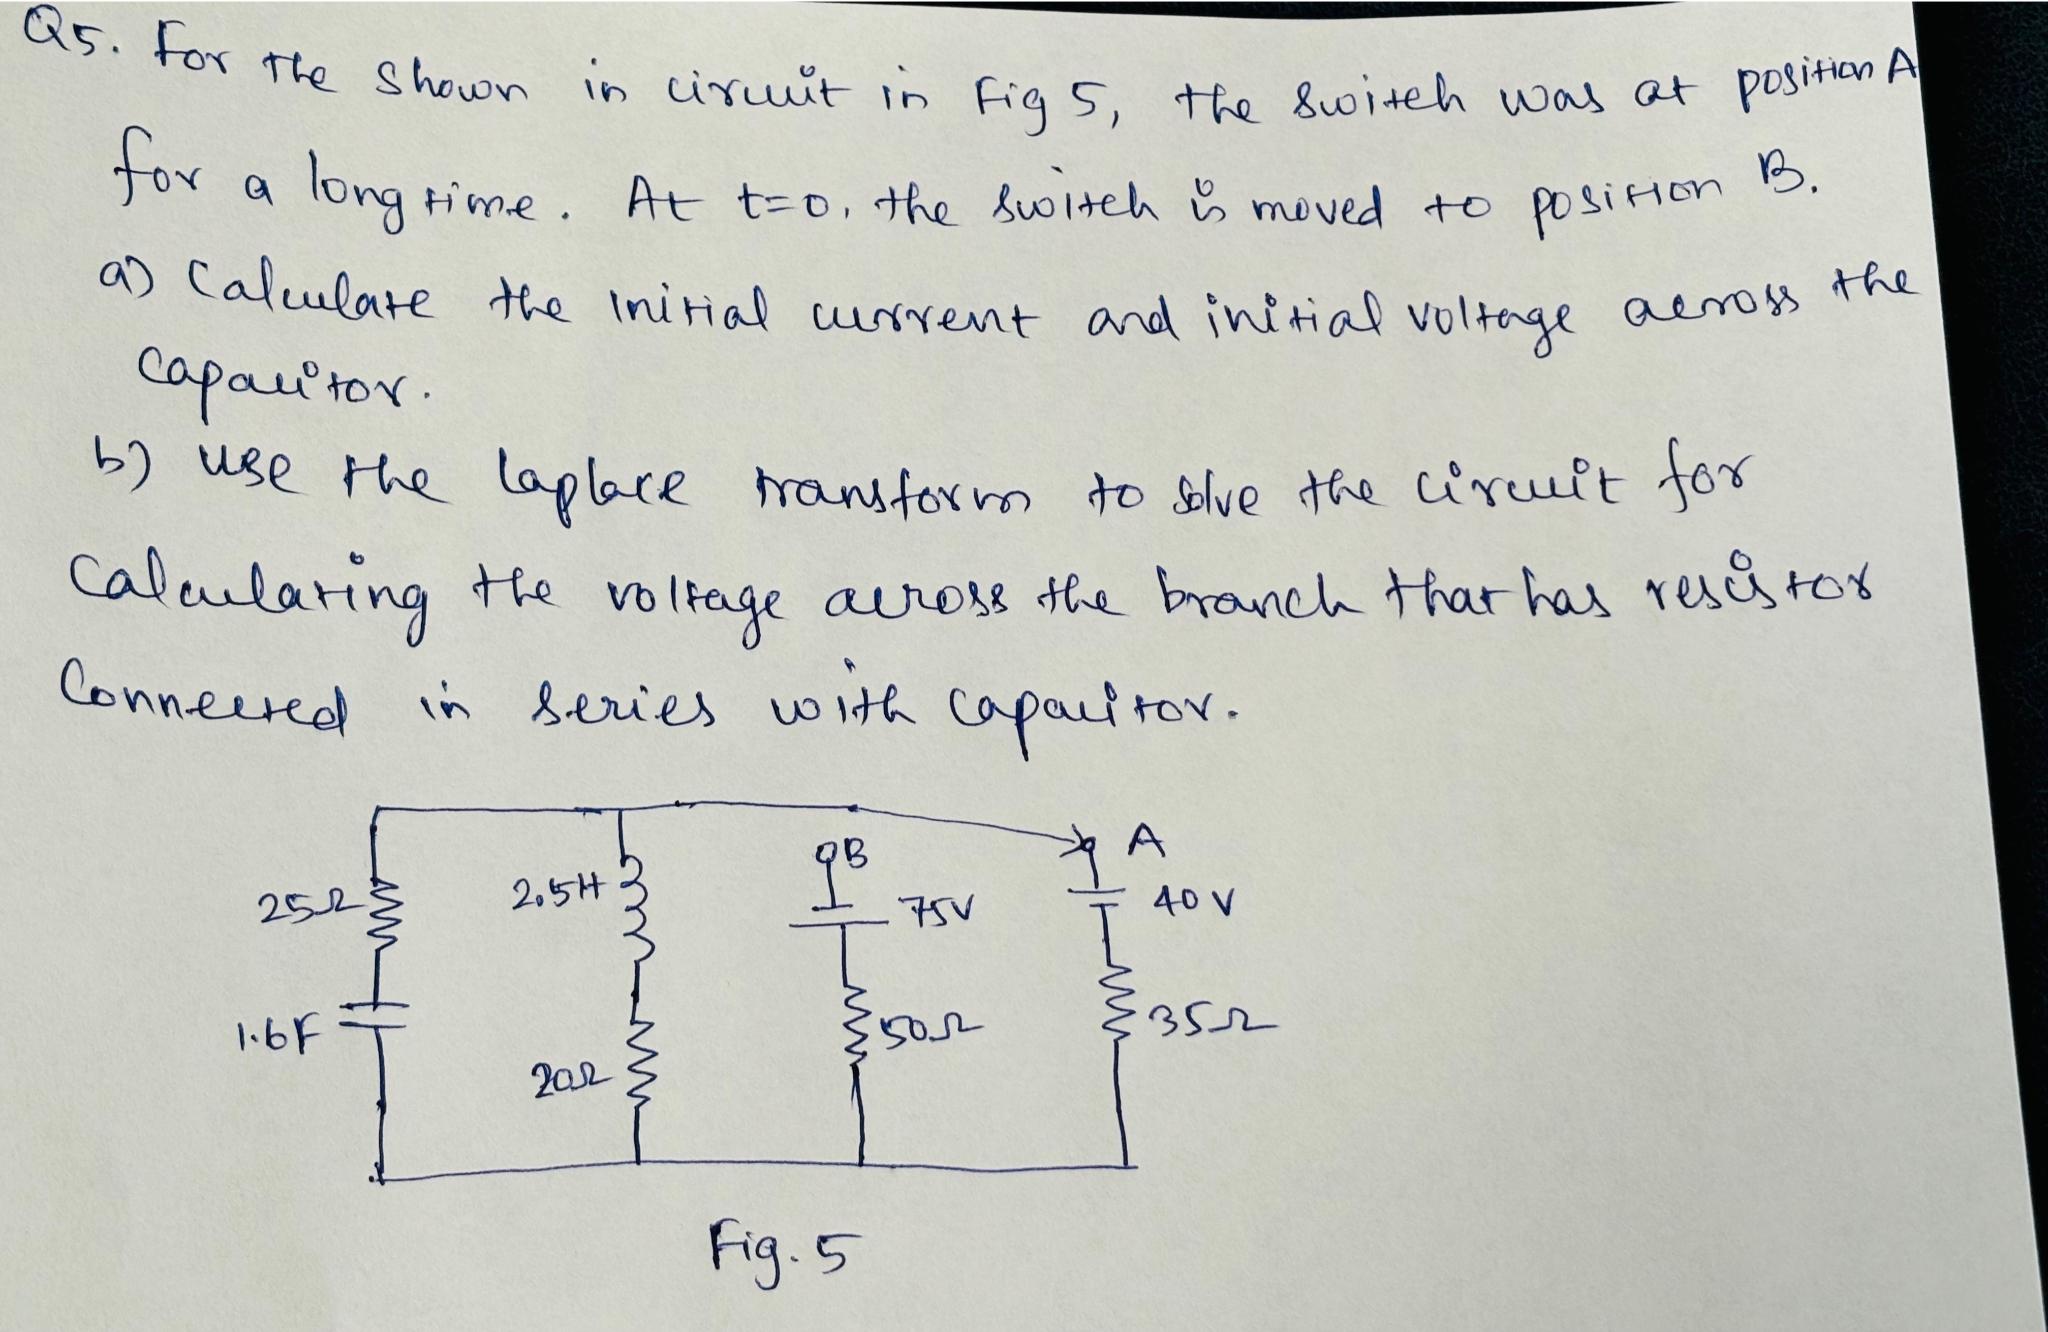 Q5. For the shown in circuit in Fig 5, the switch was at position A
for a long time. At t=0, the switch is moved to position B.
a) Calculate the initial current and initial voltage across the
capacitor.
b) use the laplace transform to solve the circuit for
calculating the voltage across the branch that has resistor
Connected in series with capacitor.
A
B
25Ω
2.5H
75V
40V
1.6F
20Ω
50Ω
35Ω
Fig. 5